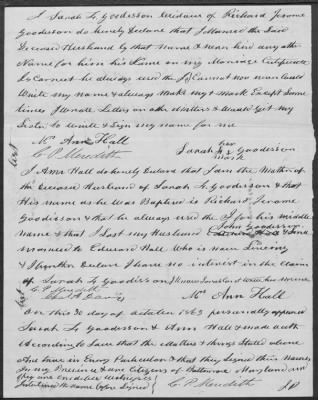 I Sarah G. Gooderson Widow of Richard Jerome
Gooderson do hereby Declare that I Married the Said
Deceased Husband by that Name & never knew any other
Name for him his Name on my Marriage Certificate
is Correct he always used the J I Cannot nor never Could
Write my name & always Make my X Mark Except Some
times I Wrote Letters on other Matters & Would get my
Sister to Write & Sign my name for me
Mrs Ann Hall
C P Meredith
Test
her
Sarah G X Gooderson
mark
I Ann Hall do hereby Declare that I am the Mother of
the Deceased Husband of Sarah G. Gooderson & that
His name as he Was Baptized is Richard Jerome
Gooderson & that he always used the J for his middle
Name & that I Lost my Husband John Gooderson & am
married to Edward Hall Who is now Living
& I further Declare I have no interest in the Claim
of Sarah G Gooderson
C P Meredith
Test
Mrs Ann Hall
On this 30 day of October 1863 personally appeared
Sarah G Gooderson & Ann Hall & made oath
According to Law that the Matters & things Stated above
Are true in Every Particular & that they Signed their Names
in My Presence & are Citizens of Baltimore Maryland and
they are Credible Witnesses
Interlined the name before Signed
C P Meredith JP